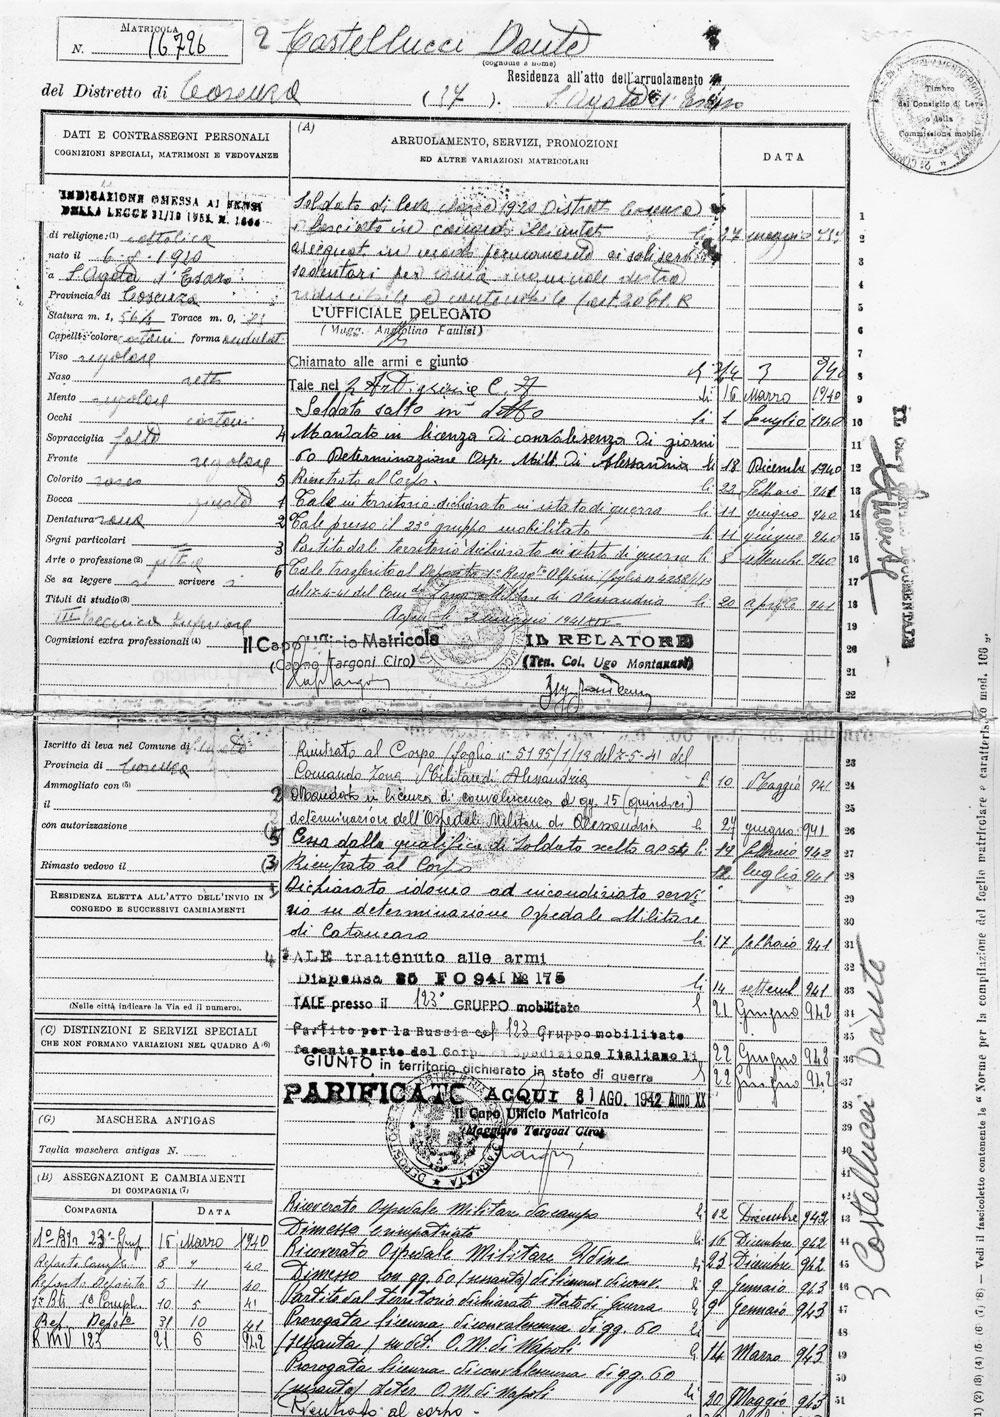 MATRICOLA
N. 16796
2 Castellucci Dante
(cognome e nome)
Residenza all'atto dell'arruolamento
del Distretto di Cosenza (37).
S. Agata d'Esaro
Timbro
del Consiglio di Leva
o della
Commissione mobile
DATI E CONTRASSEGNI PERSONALI
COGNIZIONI SPECIALI, MATRIMONI E VEDOVANZE
(A)
ARRUOLAMENTO, SERVIZI, PROMOZIONI
ED ALTRE VARIAZIONI MATRICOLARI
DATA
INDICAZIONE OMESSA AI SENSI
DELLA LEGGE 31/10 1955, N. 1064
di religione:(1) cattolica
nato il 6-8-1920
a S. Agata d'Esaro
Provincia di Cosenza
Statura m. 1, 56½ Torace m. 0,
Capelli: colore castani forma
Viso regolare
Naso retto
Mento regolare
Occhi castani
Sopracciglia folte
Fronte regolare
Colorito roseo
Bocca giusta
Dentatura sana
Segni particolari
Arte o professione (2)
Se sa leggere si scrivere si
Titoli di studio(3)
Cognizioni extra professionali (4)
Soldato di leva classe 1920 Distretto Cosenza
e lasciato in congedo illimitato li 27 maggio
assegnato in modo permanente ai soli servizi
sedentari per ernia inguinale destra
riducibile e contenibile (art. 20
L'UFFICIALE DELEGATO
(Magg. Angiolino Faulisi)
Chiamato alle armi e giunto li 14 3 940
Tale nel 2 Art. C. A. li 16 Marzo 1940
Soldato scelto in detto li 1 Luglio 1940
4 Mandato in licenza di convalescenza di giorni
60 Determinazione Osp. Milit. Di Alessandria li 18 Dicembre 1940
5 Rientrato al Corpo. li 22 Febbraio 941
1 Tale in territorio dichiarato in istato di guerra li 11 giugno 940
2 Tale presso il 23° gruppo mobilitato li 11 giugno 940
3 Partito dal territorio dichiarato in istato di guerra li 8 settembre 940
6 Tale trasferito al Deposito 1° Regg.to Alpini (foglio n 4238/1/3
del 7-4-41 del Com. do Zona Militare di Alessandria li 20 aprile 941
Acqui li 2 maggio 1941 XIX
Il Capo Ufficio Matricola
(Capno Targoni Ciro)
IL RELATORE
(Ten. Col. Ugo Montanari)
Iscritto di leva nel Comune di S. Agata
Provincia di Cosenza
Ammogliato con (5)
il
con autorizzazione
Rimasto vedovo il
RESIDENZA ELETTA ALL'ATTO DELL'INVIO IN
CONGEDO E SUCCESSIVI CAMBIAMENTI
(Nelle città indicare la Via ed il numero).
(C) DISTINZIONI E SERVIZI SPECIALI
CHE NON FORMANO VARIAZIONI NEL QUADRO A(6)
(G) MASCHERA ANTIGAS
Taglia maschera antigas N.
(B) ASSEGNAZIONI E CAMBIAMENTI
DI COMPAGNIA (7)
COMPAGNIA DATA
1° Btr 23° Grup 15 Marzo 1940
Reparto Comple 8 7 40
Reparto Deposito 5 11 40
1ª Btr 1° Compl. 10 5 41
Rep. Deposito 31 10 41
R M V 123 21 6 942
Rientrato al Corpo (foglio n° 5195/1/13 del 7-5-41 del
Comando Zona Militare di Alessandria li 10 Maggio 941
2 Mandato in licenza di convalescenza di gg. 15 (quindici)
determinazione dell'Ospedale Militare di Alessandria li 27 giugno 941
5 Cessa dalla qualifica di Soldato scelto li 19 febbraio 942
(3) Rientrato al Corpo 12 luglio 941
Dichiarato idoneo ad incondizionato servi-
zio in determinazione Ospedale Militare
di Catanzaro li 17 febbraio 941
4 TALE trattenuto alle armi
Dispensa 35 F O 941 № 175 li 14 settemb 941
TALE presso il 123° GRUPPO mobilitato li 21 Giugno 942
Partito per la Russia col 123 Gruppo mobilitato
facente parte del Corpo di Spedizione Italiano li 22 Giugno 942
GIUNTO in territorio dichiarato in stato di guerra li 22 Giugno 942
PARIFICATO ACQUI 31 AGO. 1942 Anno XX
Il Capo Ufficio Matricola
(Maggiore Targoni Ciro)
Ricoverato Ospedale Militare da campo li 12 Dicembre 942
Dimesso e rimpatriato li 16 Dicembre 942
Ricoverato Ospedale Militare Udine li 23 Dicembre 942
Dimesso con gg. 60 (sessanta) di licenza di conv. li 9 Gennaio 943
Partito dal territorio dichiarato stato di Guerra li 9 Gennaio 943
Prorogata licenza di convalescenza di gg. 60 li
(sessanta) in det. O. M. di Napoli li 14 Marzo 943
Prorogata licenza di convalescenza di gg. 60
(sessanta) deter. O. M. di Napoli li 20 Maggio 943
Rientrato al corpo -
1
2
3
4
5
6
7
8
9
10
11
12
13
14
15
16
17
18
19
20
21
22
23
24
25
26
27
28
29
30
31
32
33
34
35
36
37
38
39
40
41
42
43
44
45
46
47
48
49
50
51
3 Castellucci Dante
(1) (2) (3) (4) (5) (6) (7) (8) — Vedi il fascicoletto contenente le " Norme per la compilazione del foglio matricolare e caratteristico mod. 106 "